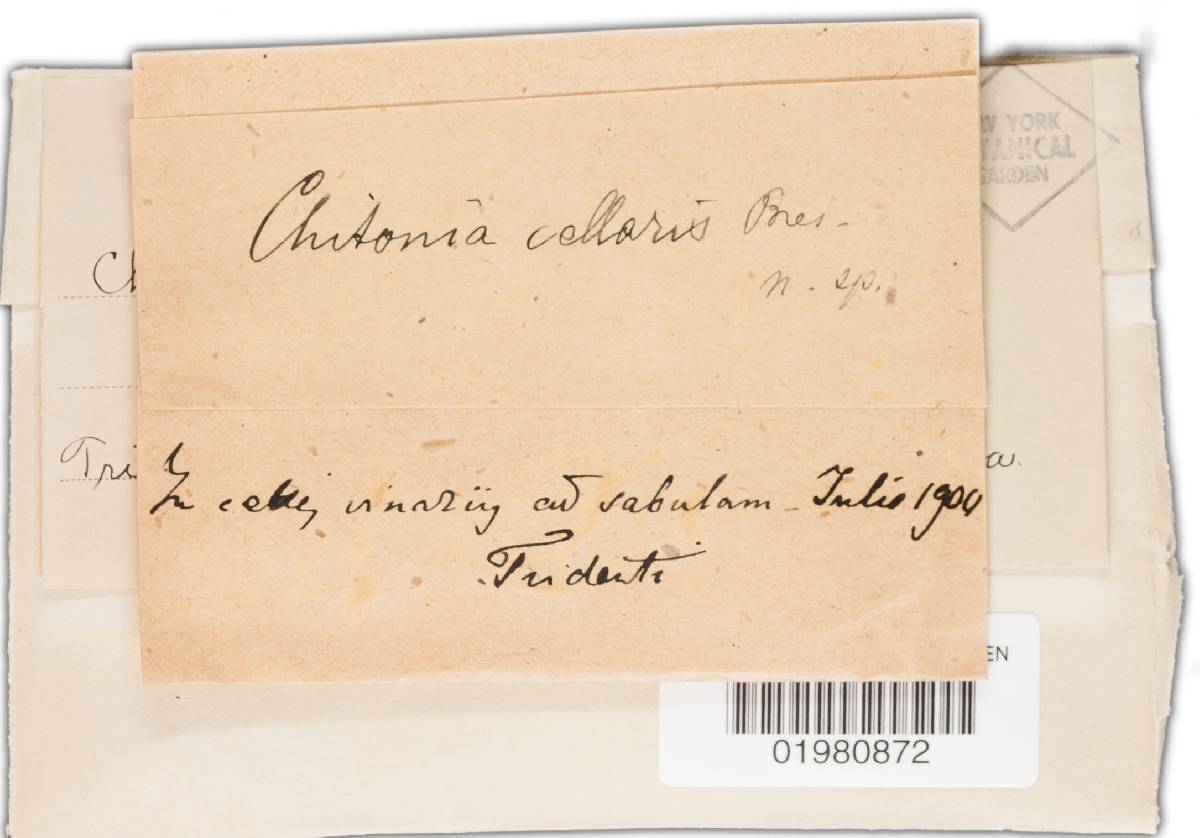 W YORK
TANICAL
GARDEN
Chitonia cellaris Bres.
n. sp.
Ch
Tri
a.
In cellij vinariij ad sabulam - Julio 1900
Tridenti
EN
01980872